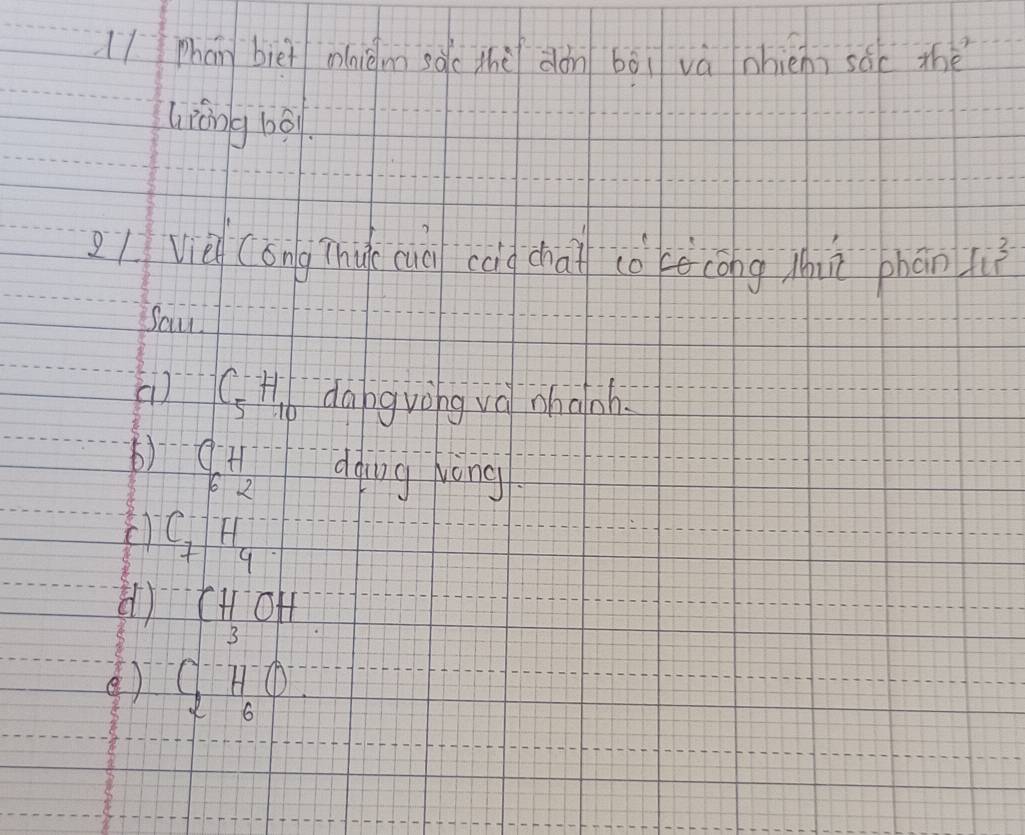 1/ Phân biệt nhiễm sắc thể đơn bội và nhiễm sắc thể
lưỡng bội.
2/ Viết Công Thức của các chất có có công thức phân tử
Sau.
a) C5H10 dạng vòng và nhánh.
b) C6H2 dạng vòng.
c) C7H9.
d) CH3OH.
e) C2H6O.